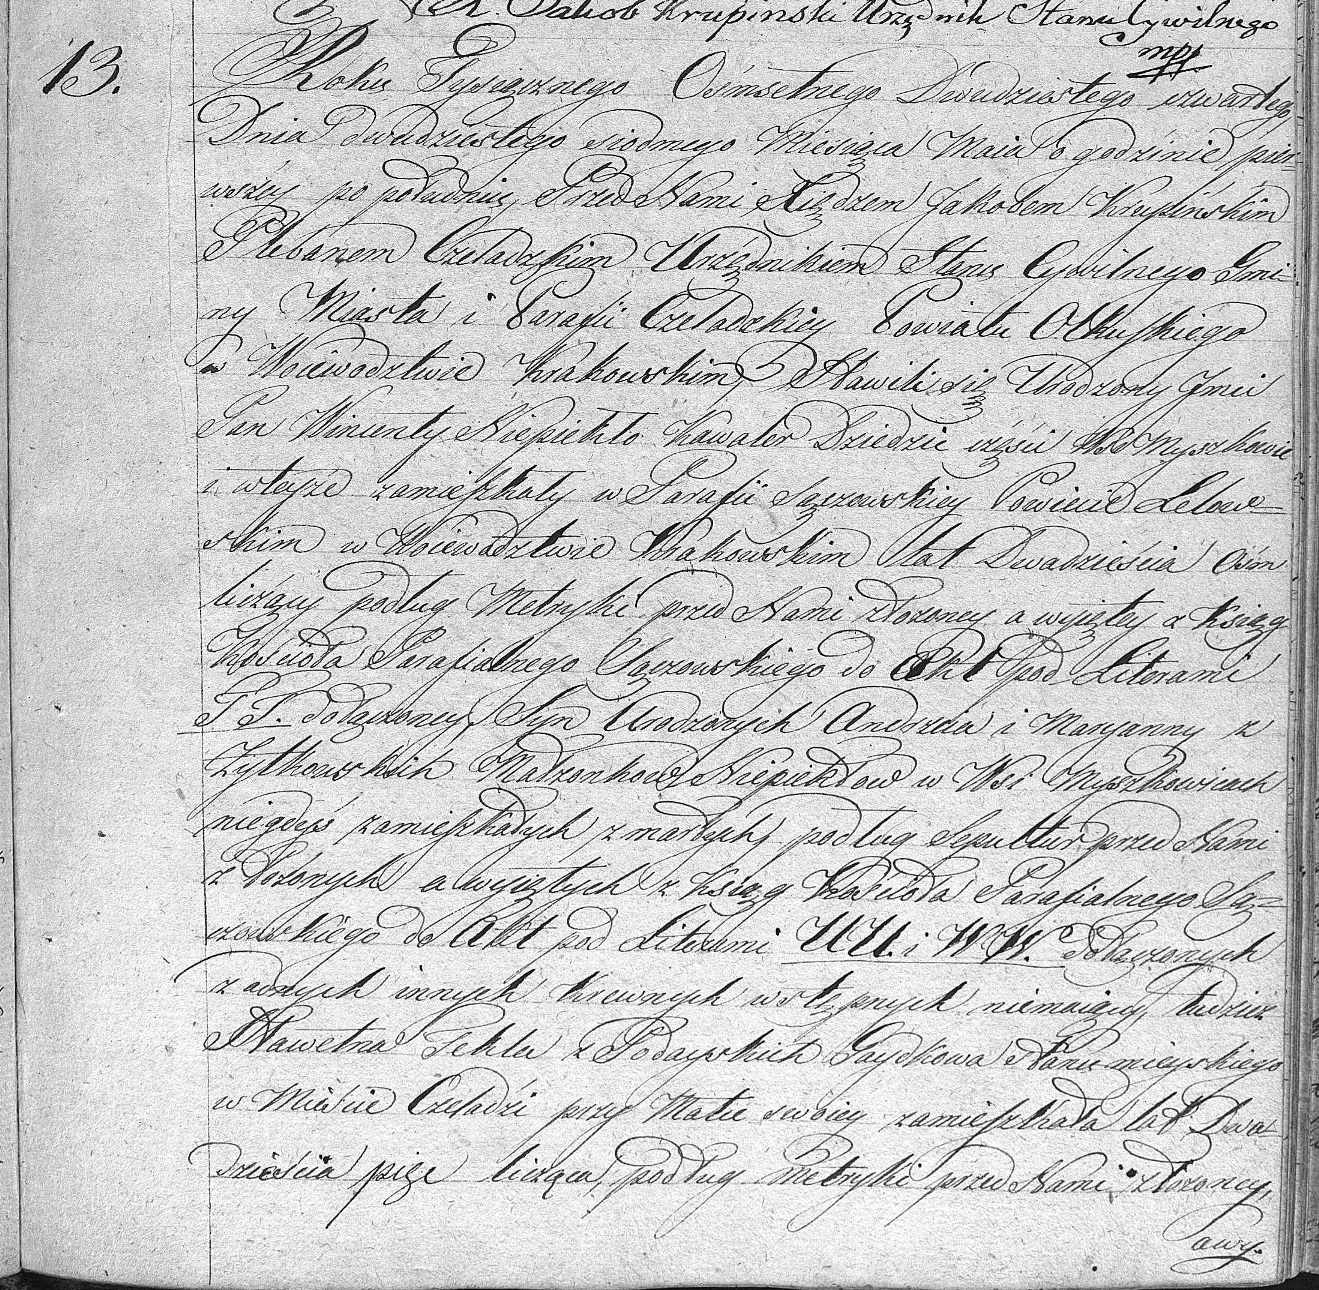 X. Jakob Krupinski Urzędnik Stanu Cywilnego
mpp.
13.
Roku Tysiącznego Ośmsetnego Dwudziestego czwartego,
Dnia dwudziestego siodmego Miesiąca Maia o godzinie pier-
wszey po południu, Przed Nami Xiędzem Jakobem Krupińskim
Plebanem Czeladzkim Urzędnikiem Stanu Cywilnego Gmi-
ny Miasta i Parafii Czeladzkiey Powiatu Olkuskiego
w Woiewodztwie Krakowskim, Stawili się Urodzony Jmci
Pan Wincenty Niepiekło Kawaler Dziedzic części Wsi Myszkowic
i wteyże zamieszkały w Parafii Sączowskiey Powiecie Lelow-
skim w Woiewodztwie Krakowskim lat Dwadzieścia Ośm
liczący podług Metryki przed Nami złożoney a wyiętey z Ksiąg
Kościoła Parafialnego Sączowskiego do Akt pod Literami
T T. dołączoney, Syn Urodzonych Andrzeia i Maryanny z
Żytkowskich Małżonkow Niepiekłow w Wsi Myszkowicach
niegdyś zamieszkałych zmarłych, podług Sepultur przed Nami
złożonych a wyiętych z Ksiąg Kościoła Parafialnego Są-
czowskiego do Akt pod Literami UU. i WW. dołączonych
żadnych innych krewnych wstępnych niemaiący, tudzież
Sławetna Tekla z Gaydkowa Stanu mieyskiego
w Mieście Czeladzi przy Matce swoiey zamieszkała lat Dwa-
dzieścia pięć licząca, podług Metryki przed Nami złożoney,
awy.